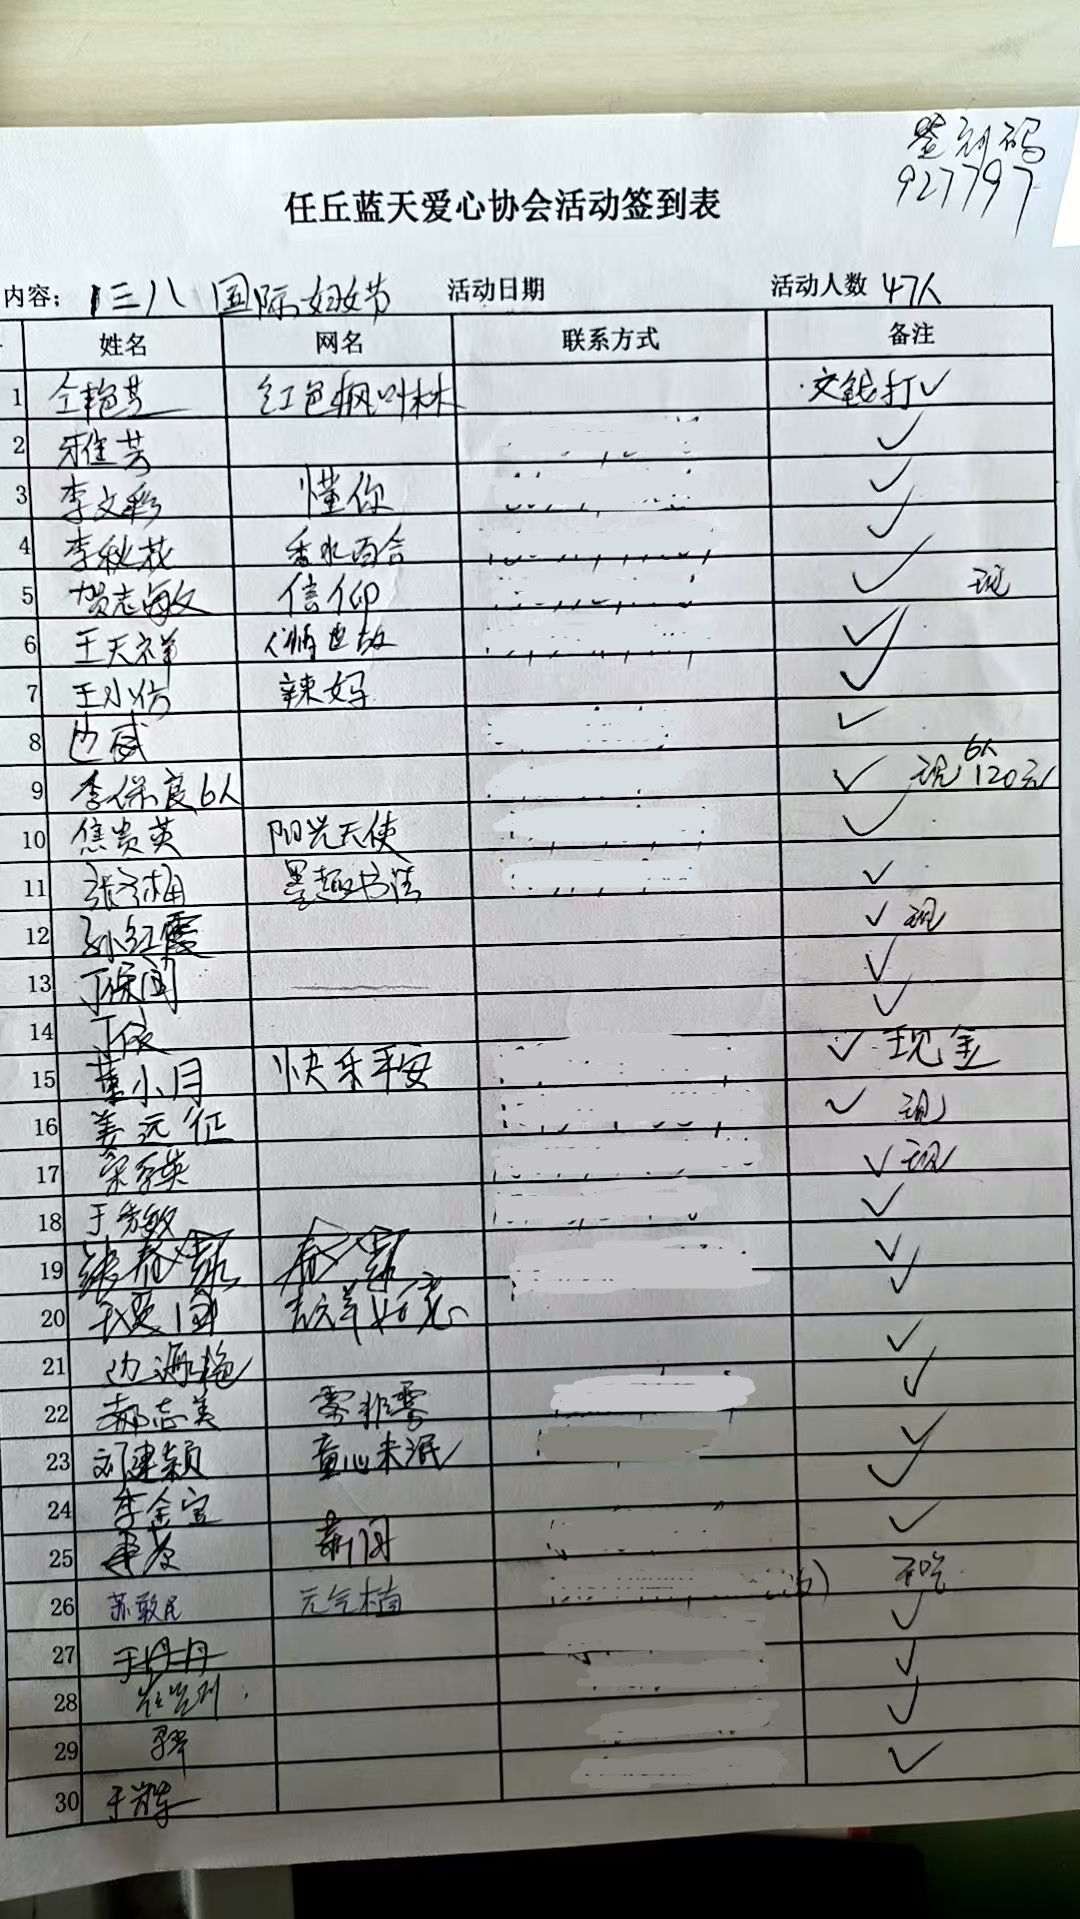 签到码
927797
任丘蓝天爱心协会活动签到表
内容: 三八国际妇女节 活动日期 活动人数 47人
姓名 网名 联系方式 备注
1 仝艳芝 红色枫叶林 交钱打✓
2 雅芳 ✓
3 李文彩 懂你 ✓
4 李秋花 香水百合 ✓
5 贺志敏 信仰 ✓ 现
6 王天祥 ✓
7 王小仿 辣妈 ✓
8 边威 ✓
9 李保良6人 ✓ 现 6人 120元
10 焦贵英 阳光天使 ✓
11 墨趣书法 ✓
12 孙红霞 ✓ 现
13 丁保国 ✓
14 ✓
15 葉小月 快乐平安 ✓ 现金
16 姜远征 ✓ 现
17 英 ✓ 现
18 于秀敏 ✓
19 张春霞 春霞 ✓
20 ✓
21 边海艳 ✓
22 郝志美 雾非雾 ✓
23 刘建颖 童心未泯 ✓
24 李金宝 ✓
25 ✓
26 苏敢民 元气植 不吃
27 于丹丹 ✓
28 ✓
29 ✓
30 于 ✓